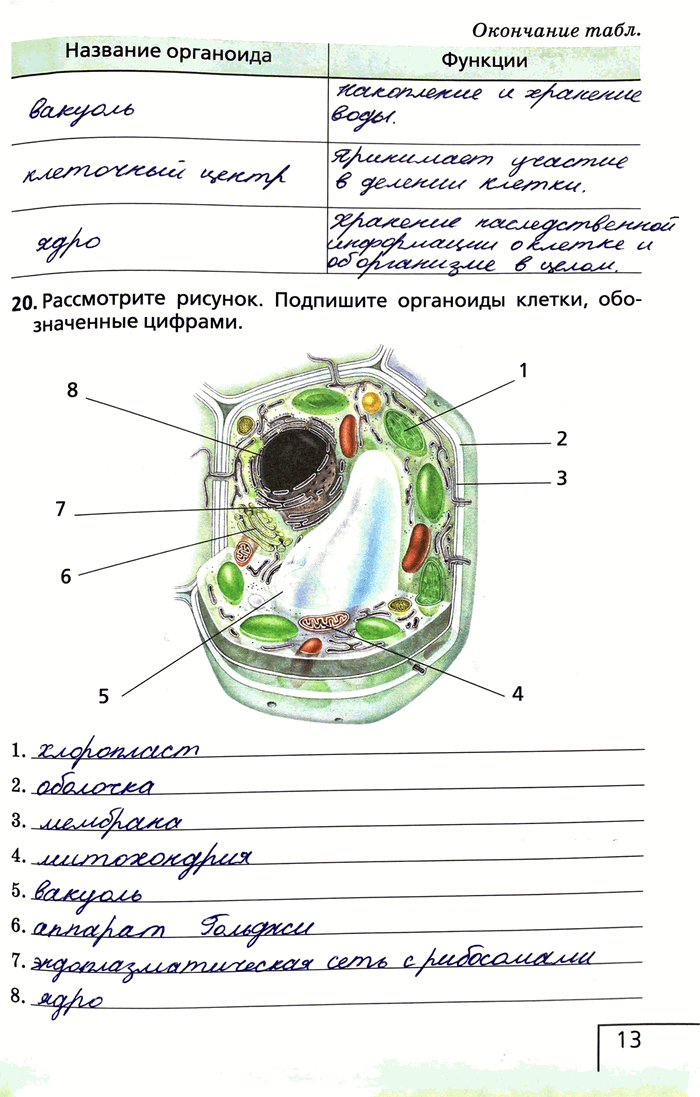 Окончание табл.
Название органоида Функции
вакуоль
накопление и хранение
воды.
клеточный центр
принимает участие
в делении клетки.
ядро
хранение наследственной
информации о клетке и
об организме в целом.
20. Рассмотрите рисунок. Подпишите органоиды клетки, обо-
значенные цифрами.
1
8
2
3
7
6
5
4
1. хлоропласт
2. оболочка
3. мембрана
4. митохондрия
5. вакуоль
6. аппарат Гольджи
7. эндоплазматическая сеть с рибосомами
8. ядро
13